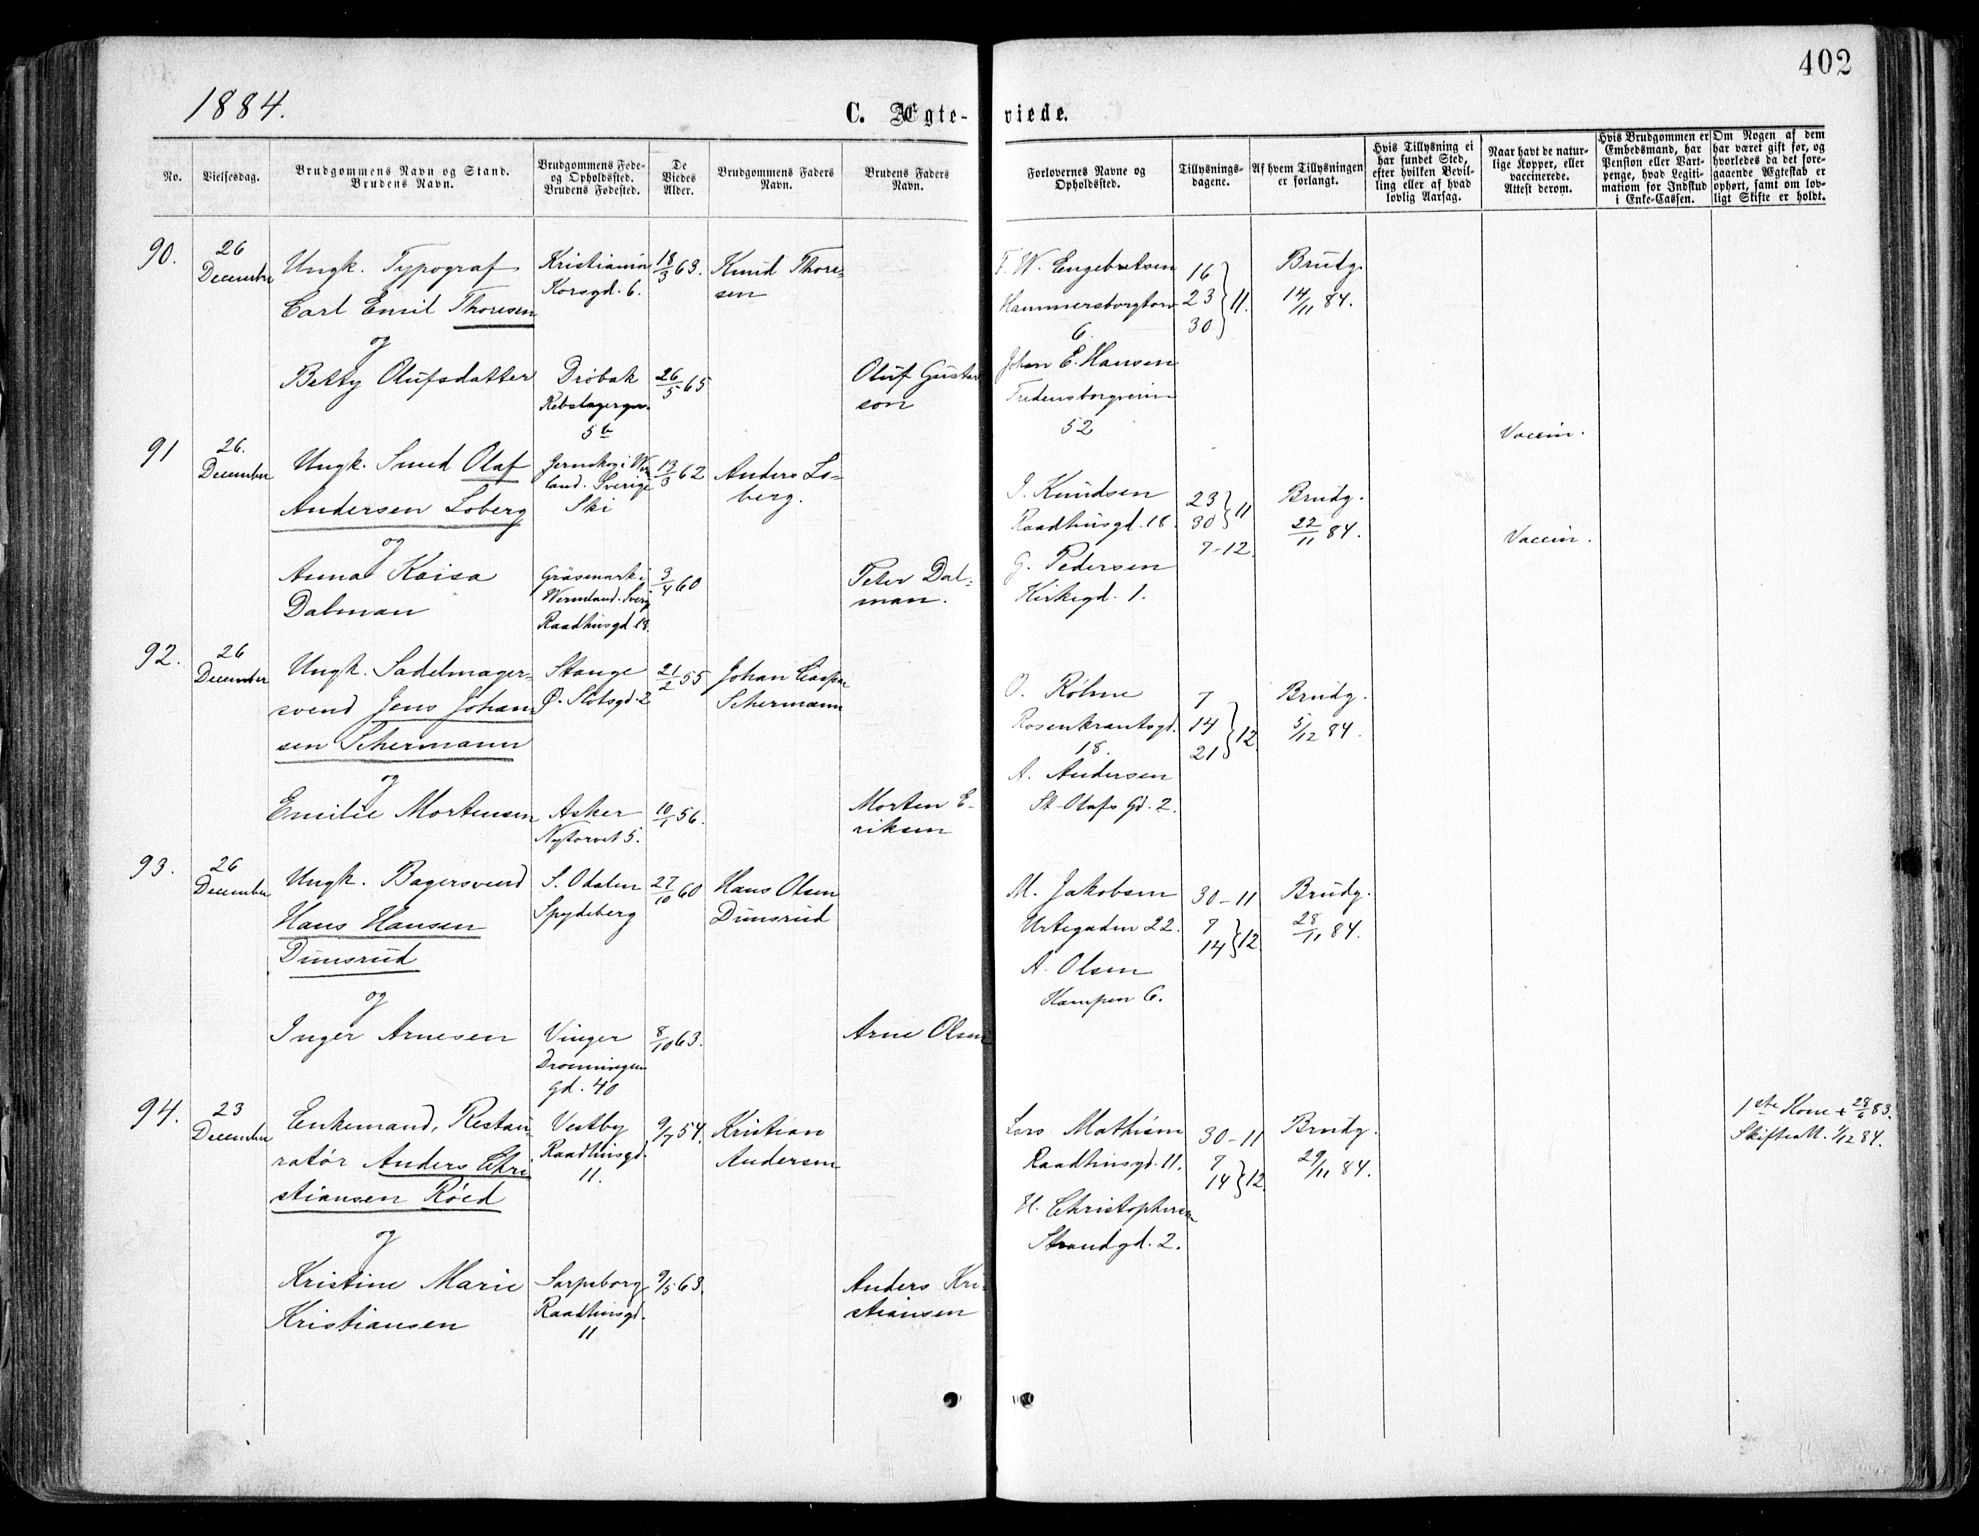 402
1884.
C. Ægte-
viede.
No.
Vielsesdag.
Brudgommens Navn og Stand.
Brudens Navn.
Brudgommens Føde-
og Opholdssted.
Brudens Fødested.
De
Viedes
Alder.
Brudgommens Faders
Navn.
Brudens Faders
Navn.
Forlovernes Navne og
Opholdssted.
Tillysnings-
dagene.
Af hvem Tillysningen
er forlangt.
Hvis Tillysning ei
har fundet Sted,
efter hvilken Bevil-
ling eller af hvad
lovlig Aarsag.
Naar havt de natur-
lige Kopper, eller
vaccinerede.
Attest derom.
Hvis Brudgommen er
Embedsmand, har
Pension eller Vart-
penge, hvad Legiti-
mation for Indskud
i Enke-Cassen.
Om Nogen af dem
har været gift før, og
hvorledes da det fore-
gaaende Ægteskab er
ophørt, samt om lov-
ligt Skifte er holdt.
90.
26
December
Ungk. Typograf
Carl Emil Thoresen
og
Betty Olufsdatter
Kristiania
Korsgd. 6.
Drøbak
Rebslagergn.
5 b
18/3 63.
26/5 65
Knud Thore-
sen
Oluf Gustav
son
F. W. Engebretsen
Hammersborgtorv
6.
Johan E. Hansen
Fredensborgveien
52
16
23 } 11.
30
Brudg.
14/11 84.
Vaccin.
91
26.
December
Ungk. Smed Olaf
Andersen Loberg
og
Anna Kaisa
Dalman
Jernskog i Werm
land. Sverige
Ski
Gräsmark i
Wermland. Sverig
Raadhusgd. 18.
13/3 62
3/4 60
Anders Lo-
berg.
Peter Dal-
man.
J. Knudsen
Raadhusgd. 18.
G. Pedersen
Kirkegd. 1.
23 } 11
30
7-12.
Brudg.
22/11 84.
Vaccin.
92.
26
December
Ungk. Sadelmager-
svend Jens Johan
sen Schermann
og
Emilie Mortensen
Stange
Ø. Slotsgd. 2
Asker
Nytorvet 5.
21/2 55
10/1 56.
Johan Caspar
Schermann
Morten E-
riksen
O. Røhme
Rosenkrantsgd.
18.
A. Andersen
St. Olafs Gd. 2.
7
14 } 12
21
Brudg.
5/12 84.
93.
26
December
Ungk. Bagersvend
Hans Hansen
Dunsrud
og
Inger Arnesen
S. Odalen
Spydeberg
Vinger
Dronningen
gd. 40
27/10 60
8/10 63.
Hans Olsen
Dunsrud
Arne Olsen
M. Jakobsen
Urtegaden 22.
A. Olsen
Kampen 6.
30-11
7 } 12
14
Brudg.
28/11 84.
94.
23
December
Enkemand, Restau-
ratør Anders Chri
stiansen Röed
og
Kristine Marie
Kristiansen
Vestby
Raadhusgd.
11.
Sarpsborg
Raadhusgd.
11
9/7 54.
9/5 63.
Kristian
Andersen
Anders Kri-
stiansen
Lars Mathisen
Raadhusgd. 11.
H. Christophersen
Strandgd. 2.
30-11
7 } 12.
14
Brudg.
29/11 84.
1ste Kone + 28/6 83.
Skifteatt. 1/12 84.